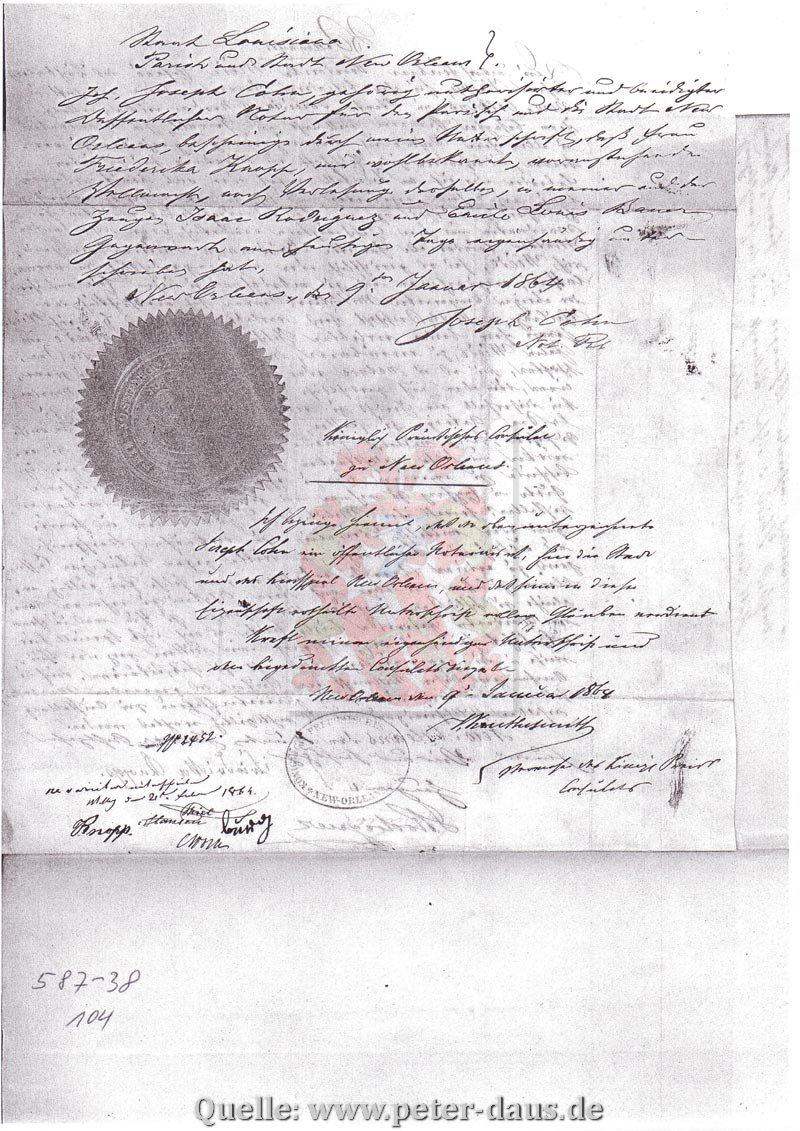 Staat Louisiana
Parish und Stadt New Orleans
Ich, Joseph Cohn, gehörig authorisirter und beeidigter
Oeffentlicher Notar für das Parish und die Stadt New
Orleans, bescheinige durch meine Unterschrift, daß Frau
Friederika Knopp, mir wohlbekannt, voranstehende
Vollmacht, nach Verlesung derselben, in meiner und der
Zeugen Isaac Rodriguez und Emile Louis Bauer
Gegenwart am heutigen Tage eigenhändig unter
schrieben hat.
New Orleans, den 9ten Januar 1864
Joseph Cohn
Not. Pub
Königlich Preußisches Consulat
zu New Orleans.
Ich bezeuge hiermit, daß der oben unterzeichnete
Joseph Cohn ein öffentlicher Notar ist, für die Stadt
und das Kirchspiel New Orleans, und daß seine in dieser
Eigenschaft ertheilte Unterschrift vollen Glauben verdient
Kraft meiner eigenhändigen Unterschrift und
des beigedruckten Consulatssiegels
New Orleans den 9. Januar 1864
Verweser des Königl Preuss
Consulats
NEW-ORLEANS
No 2452.
1864.
Knopp
587-38
104
Quelle: www.peter-daus.de